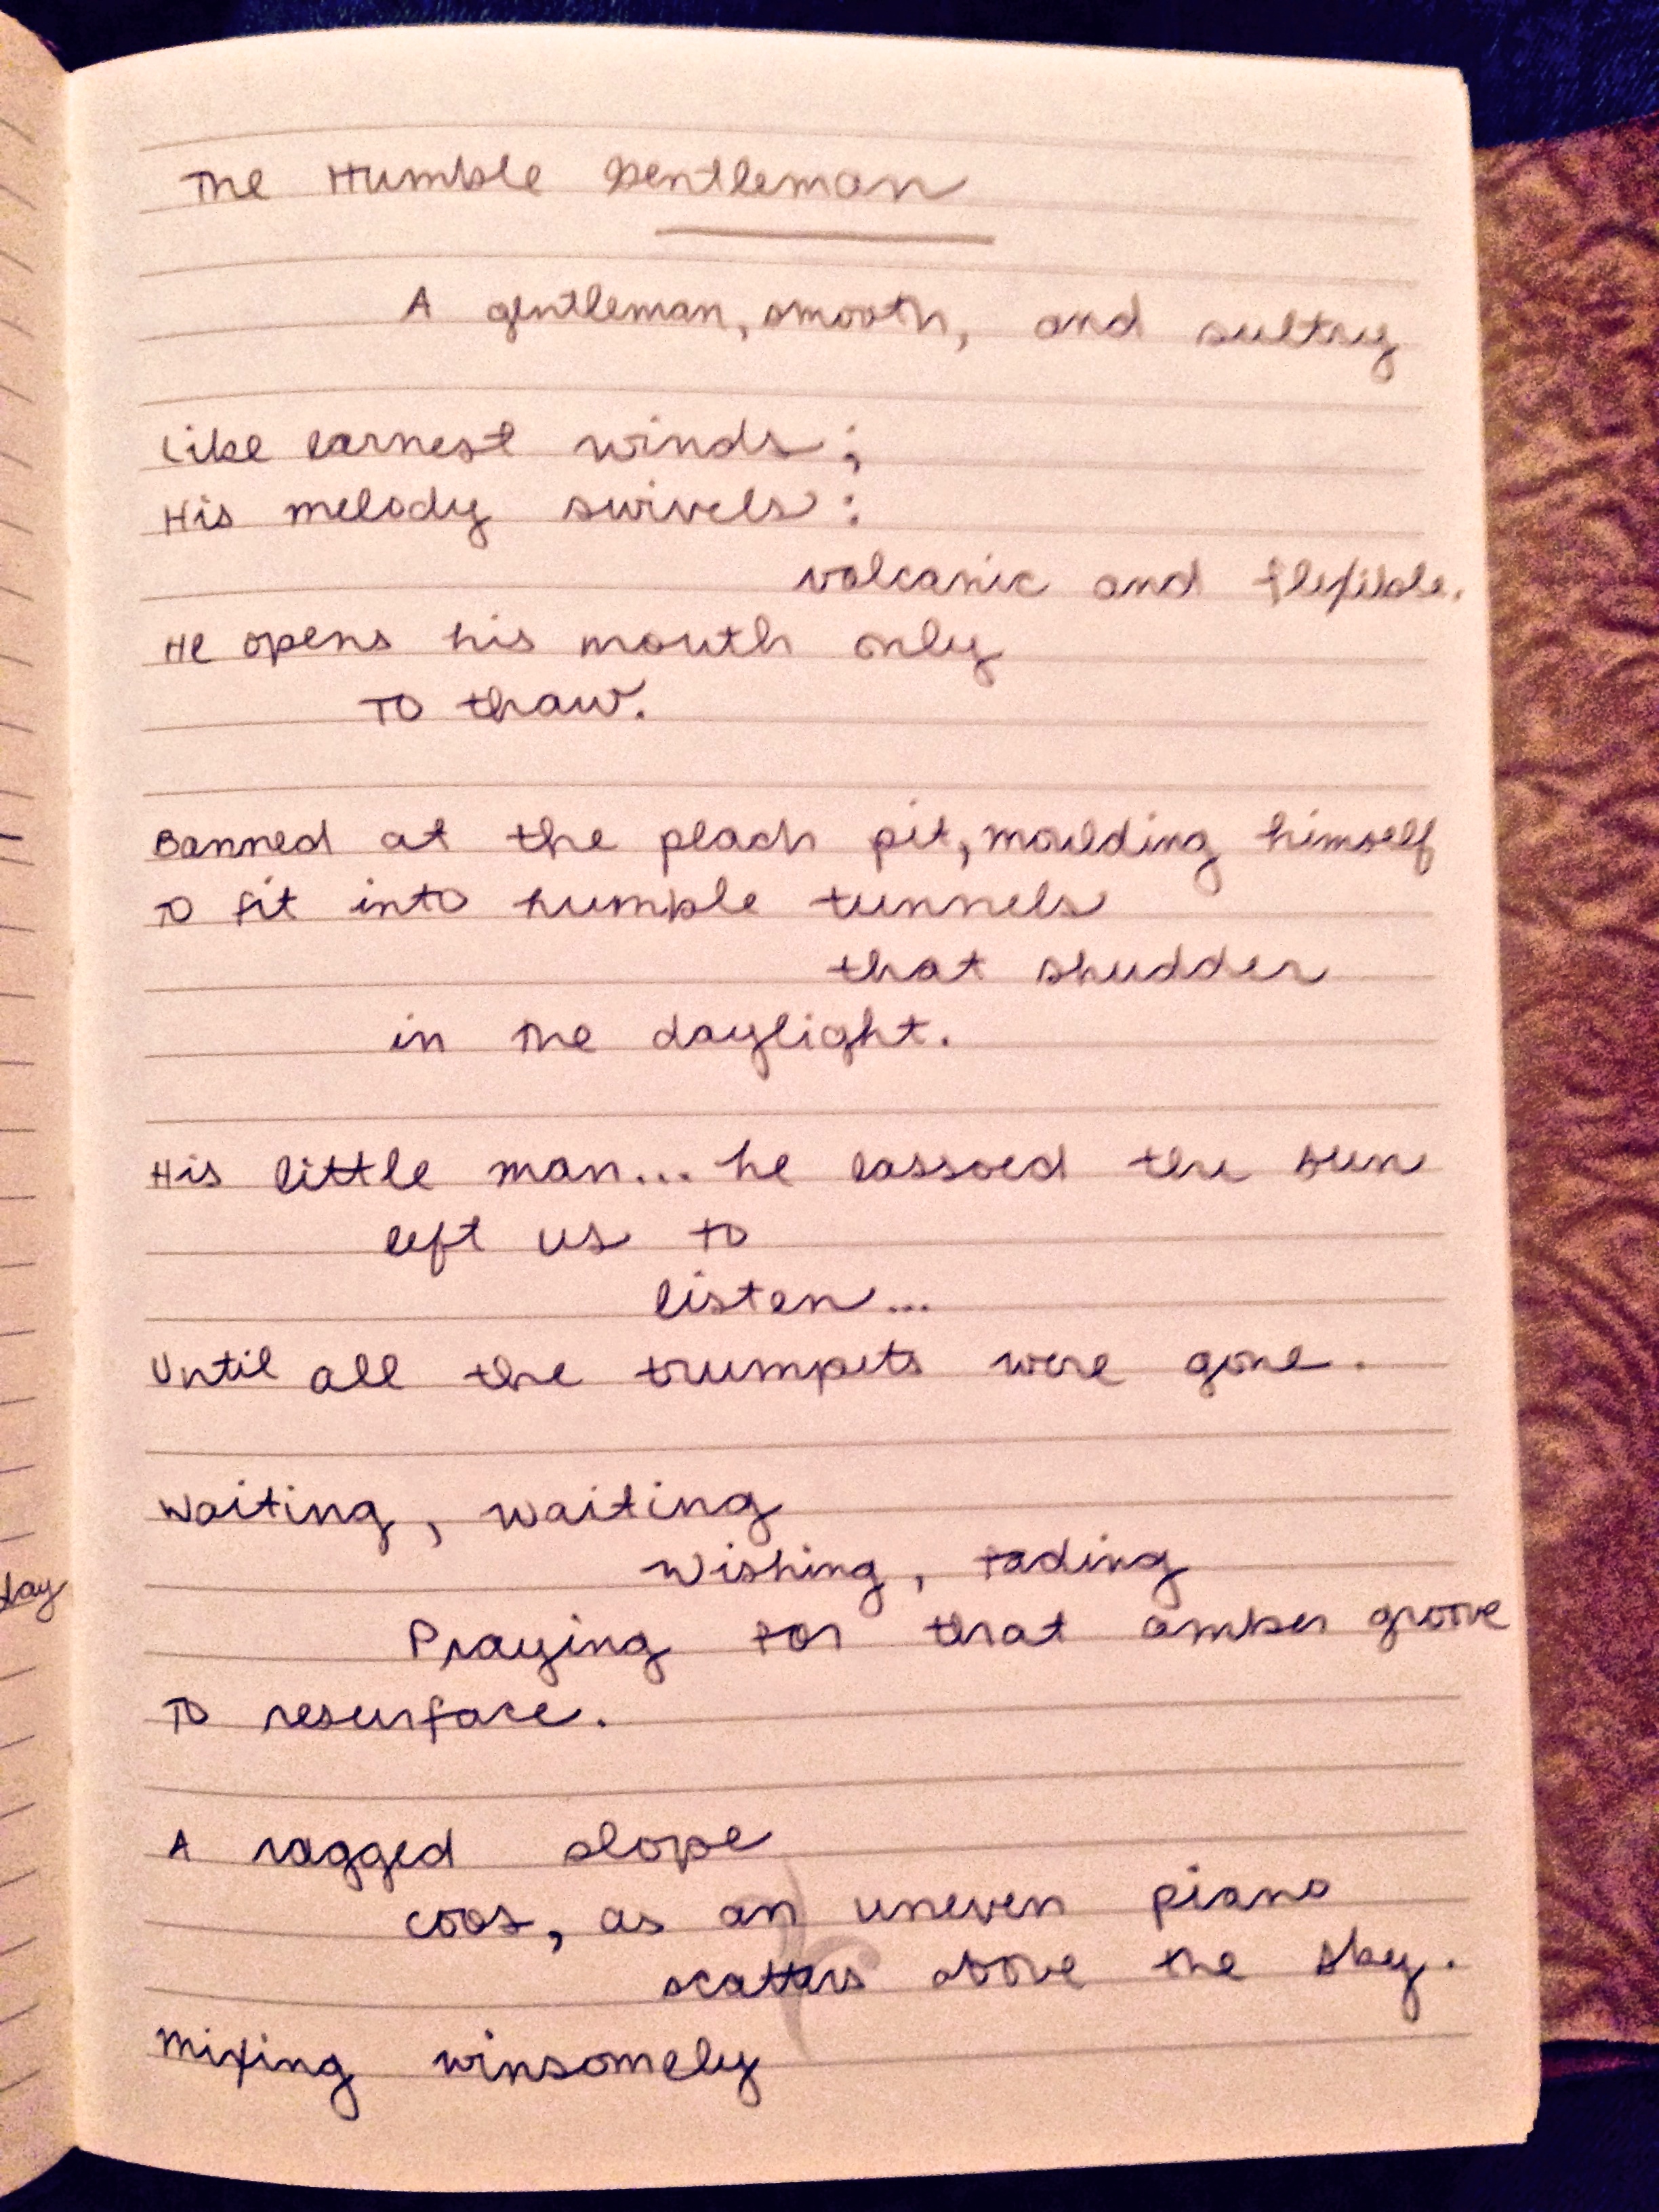 The Humble Gentleman
A gentleman, smooth, and sultry
Like earnest winds;
His melody swivels:
volcanic and flexible.
He opens his mouth only
To thaw.
Banned at the peach pit, moulding himself
To fit into humble tunnels
that shudder
in the daylight.
His little man... he lassoed the sun
left us to
listen...
Until all the trumpets were gone.
Waiting, waiting
Wishing, fading
Praying for that amber groove
To resurface.
A ragged slope
coos, as an uneven piano
scatters above the sky.
Mixing winsomely
day